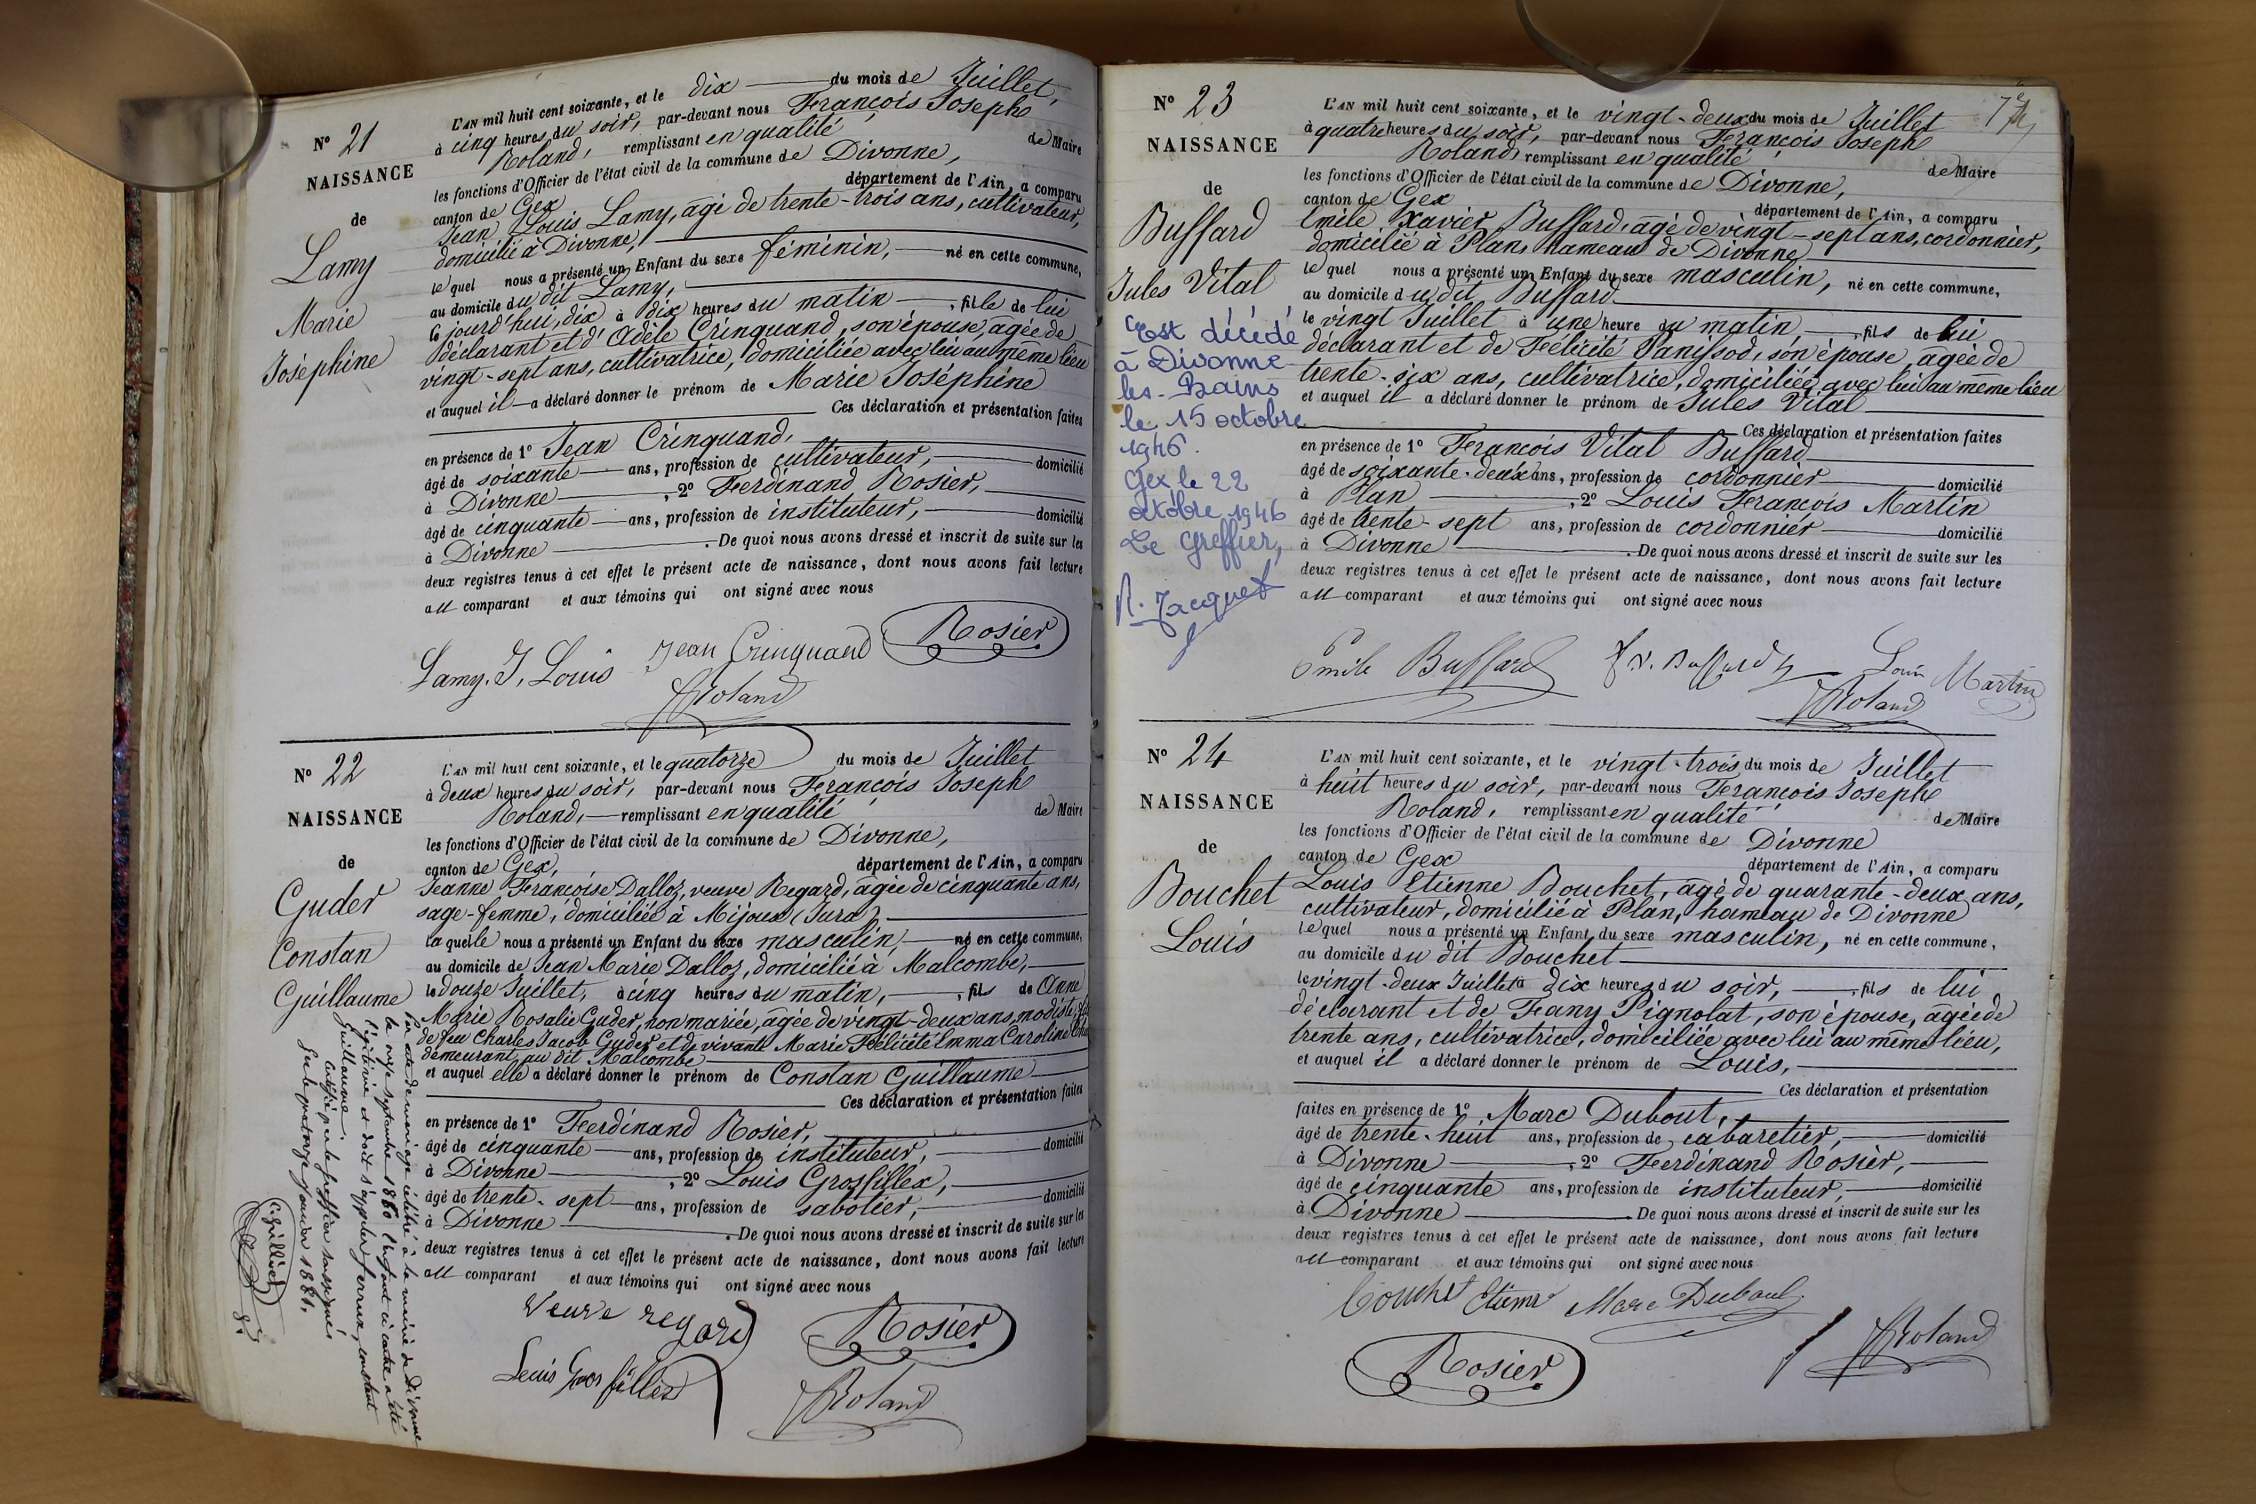 N° 21
NAISSANCE
de
Lamy
Marie
Joséphine
L'AN mil huit cent soixante, et le dix du mois de Juillet,
à cinq heures du soir, par-devant nous François Joseph
Roland, remplissant en qualité de Maire
les fonctions d'Officier de l'état civil de la commune de Divonne,
canton de Gex département de l'Ain, a comparu
Jean Louis Lamy, âgé de trente-trois ans, cultivateur,
domicilié à Divonne,
lequel nous a présenté un Enfant du sexe féminin, né en cette commune,
au domicile du dit Lamy,
ce jourd'hui, dix à dix heures du matin, fille de lui
déclarant et d'Adèle Crinquand, son épouse, âgée de
vingt-sept ans, cultivatrice, domiciliée avec lui au même lieu
et auquel il a déclaré donner le prénom de Marie Joséphine
Ces déclaration et présentation faites
en présence de 1° Jean Crinquand,
âgé de soixante ans, profession de cultivateur, domicilié
à Divonne, 2° Ferdinand Rosier,
âgé de cinquante ans, profession de instituteur, domicilié
à Divonne. De quoi nous avons dressé et inscrit de suite sur les
deux registres tenus à cet effet le présent acte de naissance, dont nous avons fait lecture
au comparant et aux témoins qui ont signé avec nous
Lamy. J. Louis Jean Crinquand Rosier
JRoland
N° 22
NAISSANCE
de
Guder
Constan
Guillaume
L'AN mil huit cent soixante, et le quatorze du mois de Juillet
à deux heures du soir, par-devant nous François Joseph
Roland, remplissant en qualité de Maire
les fonctions d'Officier de l'état civil de la commune de Divonne,
canton de Gex, département de l'Ain, a comparu
Jeanne Françoise Dalloz, veuve Regard, âgée de cinquante ans,
sage-femme, domiciliée à Mijoux (Jura),
laquelle nous a présenté un Enfant du sexe masculin, né en cette commune,
au domicile de Jean Marie Dalloz, domicilié à Malcombe,
le douze Juillet, à cinq heures du matin, fils de Anne
Marie Rosalie Guder, non mariée, âgée de vingt-deux ans, modiste,
de feu Charles Jacob Guder et de vivante Marie Félicité Emma Caroline
demeurant au dit Malcombe
et auquel elle a déclaré donner le prénom de Constan Guillaume
Ces déclaration et présentation faites
en présence de 1° Ferdinand Rosier,
âgé de cinquante ans, profession de instituteur, domicilié
à Divonne, 2° Louis Grosfillex,
âgé de trente-sept ans, profession de sabotier, domicilié
à Divonne. De quoi nous avons dressé et inscrit de suite sur les
deux registres tenus à cet effet le présent acte de naissance, dont nous avons fait lecture
au comparant et aux témoins qui ont signé avec nous
Veuve regard Rosier
Louis Grosfillex JRoland
Par acte de mariage célébré à la mairie de Divonne
le onze septembre 1860 l'enfant ci contre a été
légitimé et doit s'appeler Perrux, constant
Guillaume.
Certifié par le greffier soussigné
Gex le quatorze janvier 1881.
N° 23
NAISSANCE
de
Buffard
Jules Vital
Est décédé
à Divonne-
les-Bains
le 15 octobre
1946.
Gex le 22
octobre 1946
Le Greffier,
R. Jacquet
7e
L'AN mil huit cent soixante, et le vingt-deux du mois de Juillet
à quatre heures du soir, par-devant nous François Joseph
Roland, remplissant en qualité de Maire
les fonctions d'Officier de l'état civil de la commune de Divonne,
canton de Gex département de l'Ain, a comparu
Emile Xavier Buffard, âgé de vingt-sept ans, cordonnier,
domicilié à Plan, hameau de Divonne
lequel nous a présenté un Enfant du sexe masculin, né en cette commune,
au domicile du dit Buffard
le vingt Juillet à une heure du matin, fils de lui
déclarant et de Félicité Panissod, son épouse, âgée de
trente-six ans, cultivatrice, domiciliée avec lui au même lieu
et auquel il a déclaré donner le prénom de Jules Vital
Ces déclaration et présentation faites
en présence de 1° François Vital Buffard
âgé de soixante-deux ans, profession de cordonnier domicilié
à Plan, 2° Louis François Martin
âgé de trente-sept ans, profession de cordonnier domicilié
à Divonne. De quoi nous avons dressé et inscrit de suite sur les
deux registres tenus à cet effet le présent acte de naissance, dont nous avons fait lecture
au comparant et aux témoins qui ont signé avec nous
Emile Buffard f. v. Buffard Louis Martin
JRoland
N° 24
NAISSANCE
de
Bouchet
Louis
L'AN mil huit cent soixante, et le vingt-trois du mois de Juillet
à huit heures du soir, par-devant nous François Joseph
Roland, remplissant en qualité de Maire
les fonctions d'Officier de l'état civil de la commune de Divonne
canton de Gex département de l'Ain, a comparu
Louis Etienne Bouchet, âgé de quarante-deux ans,
cultivateur, domicilié à Plan, hameau de Divonne
lequel nous a présenté un Enfant du sexe masculin, né en cette commune,
au domicile du dit Bouchet
le vingt-deux Juillet à dix heures du soir, fils de lui
déclarant et de Fany Pignolat, son épouse, âgée de
trente ans, cultivatrice, domiciliée avec lui au même lieu,
et auquel il a déclaré donner le prénom de Louis,
Ces déclaration et présentation
faites en présence de 1° Marc Dubout,
âgé de trente-huit ans, profession de cabaretier, domicilié
à Divonne, 2° Ferdinand Rosier,
âgé de cinquante ans, profession de instituteur, domicilié
à Divonne. De quoi nous avons dressé et inscrit de suite sur les
deux registres tenus à cet effet le présent acte de naissance, dont nous avons fait lecture
au comparant et aux témoins qui ont signé avec nous
Bouchet Etienne Marc Dubout
Rosier JRoland